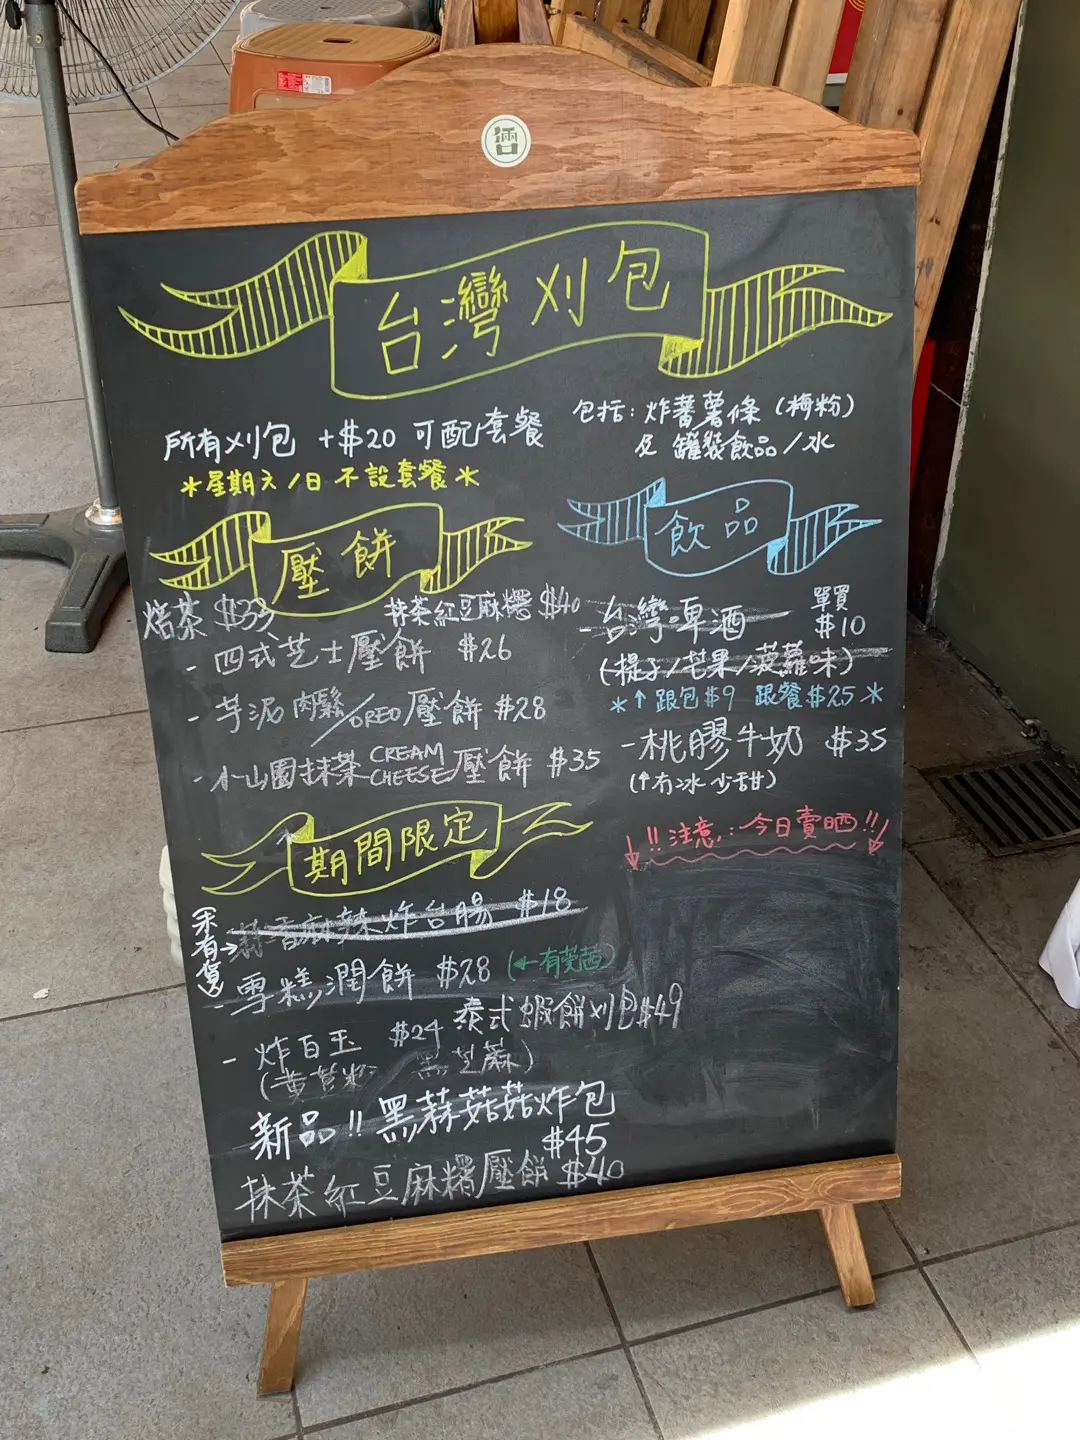 台灣刈包
所有刈包 +$20 可配套餐
*星期六/日 不設套餐*
包括: 炸蕃薯條 (梅粉)
及 罐裝飲品/水
壓餅
焙茶 $33
抹茶紅豆麻糬 $40
- 四式芝士壓餅 $26
- 芋泥肉鬆/OREO壓餅 $28
- 小山園抹茶 CREAM CHEESE壓餅 $35
飲品
- 台灣啤酒 單買 $10
(提子/芒果/菠蘿味)
*↑ 跟包$9 跟餐$25*
- 桃膠牛奶 $35
(↑冇冰 少甜)
!! 注意: 今日賣晒!!
期間限定
(未有貨)→
蒜香麻辣炸台腸 $18
- 雪糕潤餅 $28 (←有芫茜)
泰式蝦餅刈包$49
- 炸百玉 $24
(黃荳粉 黑芝蔴)
新品!! 黑蒜菇菇炸包
$45
抹茶紅豆麻糬壓餅 $40